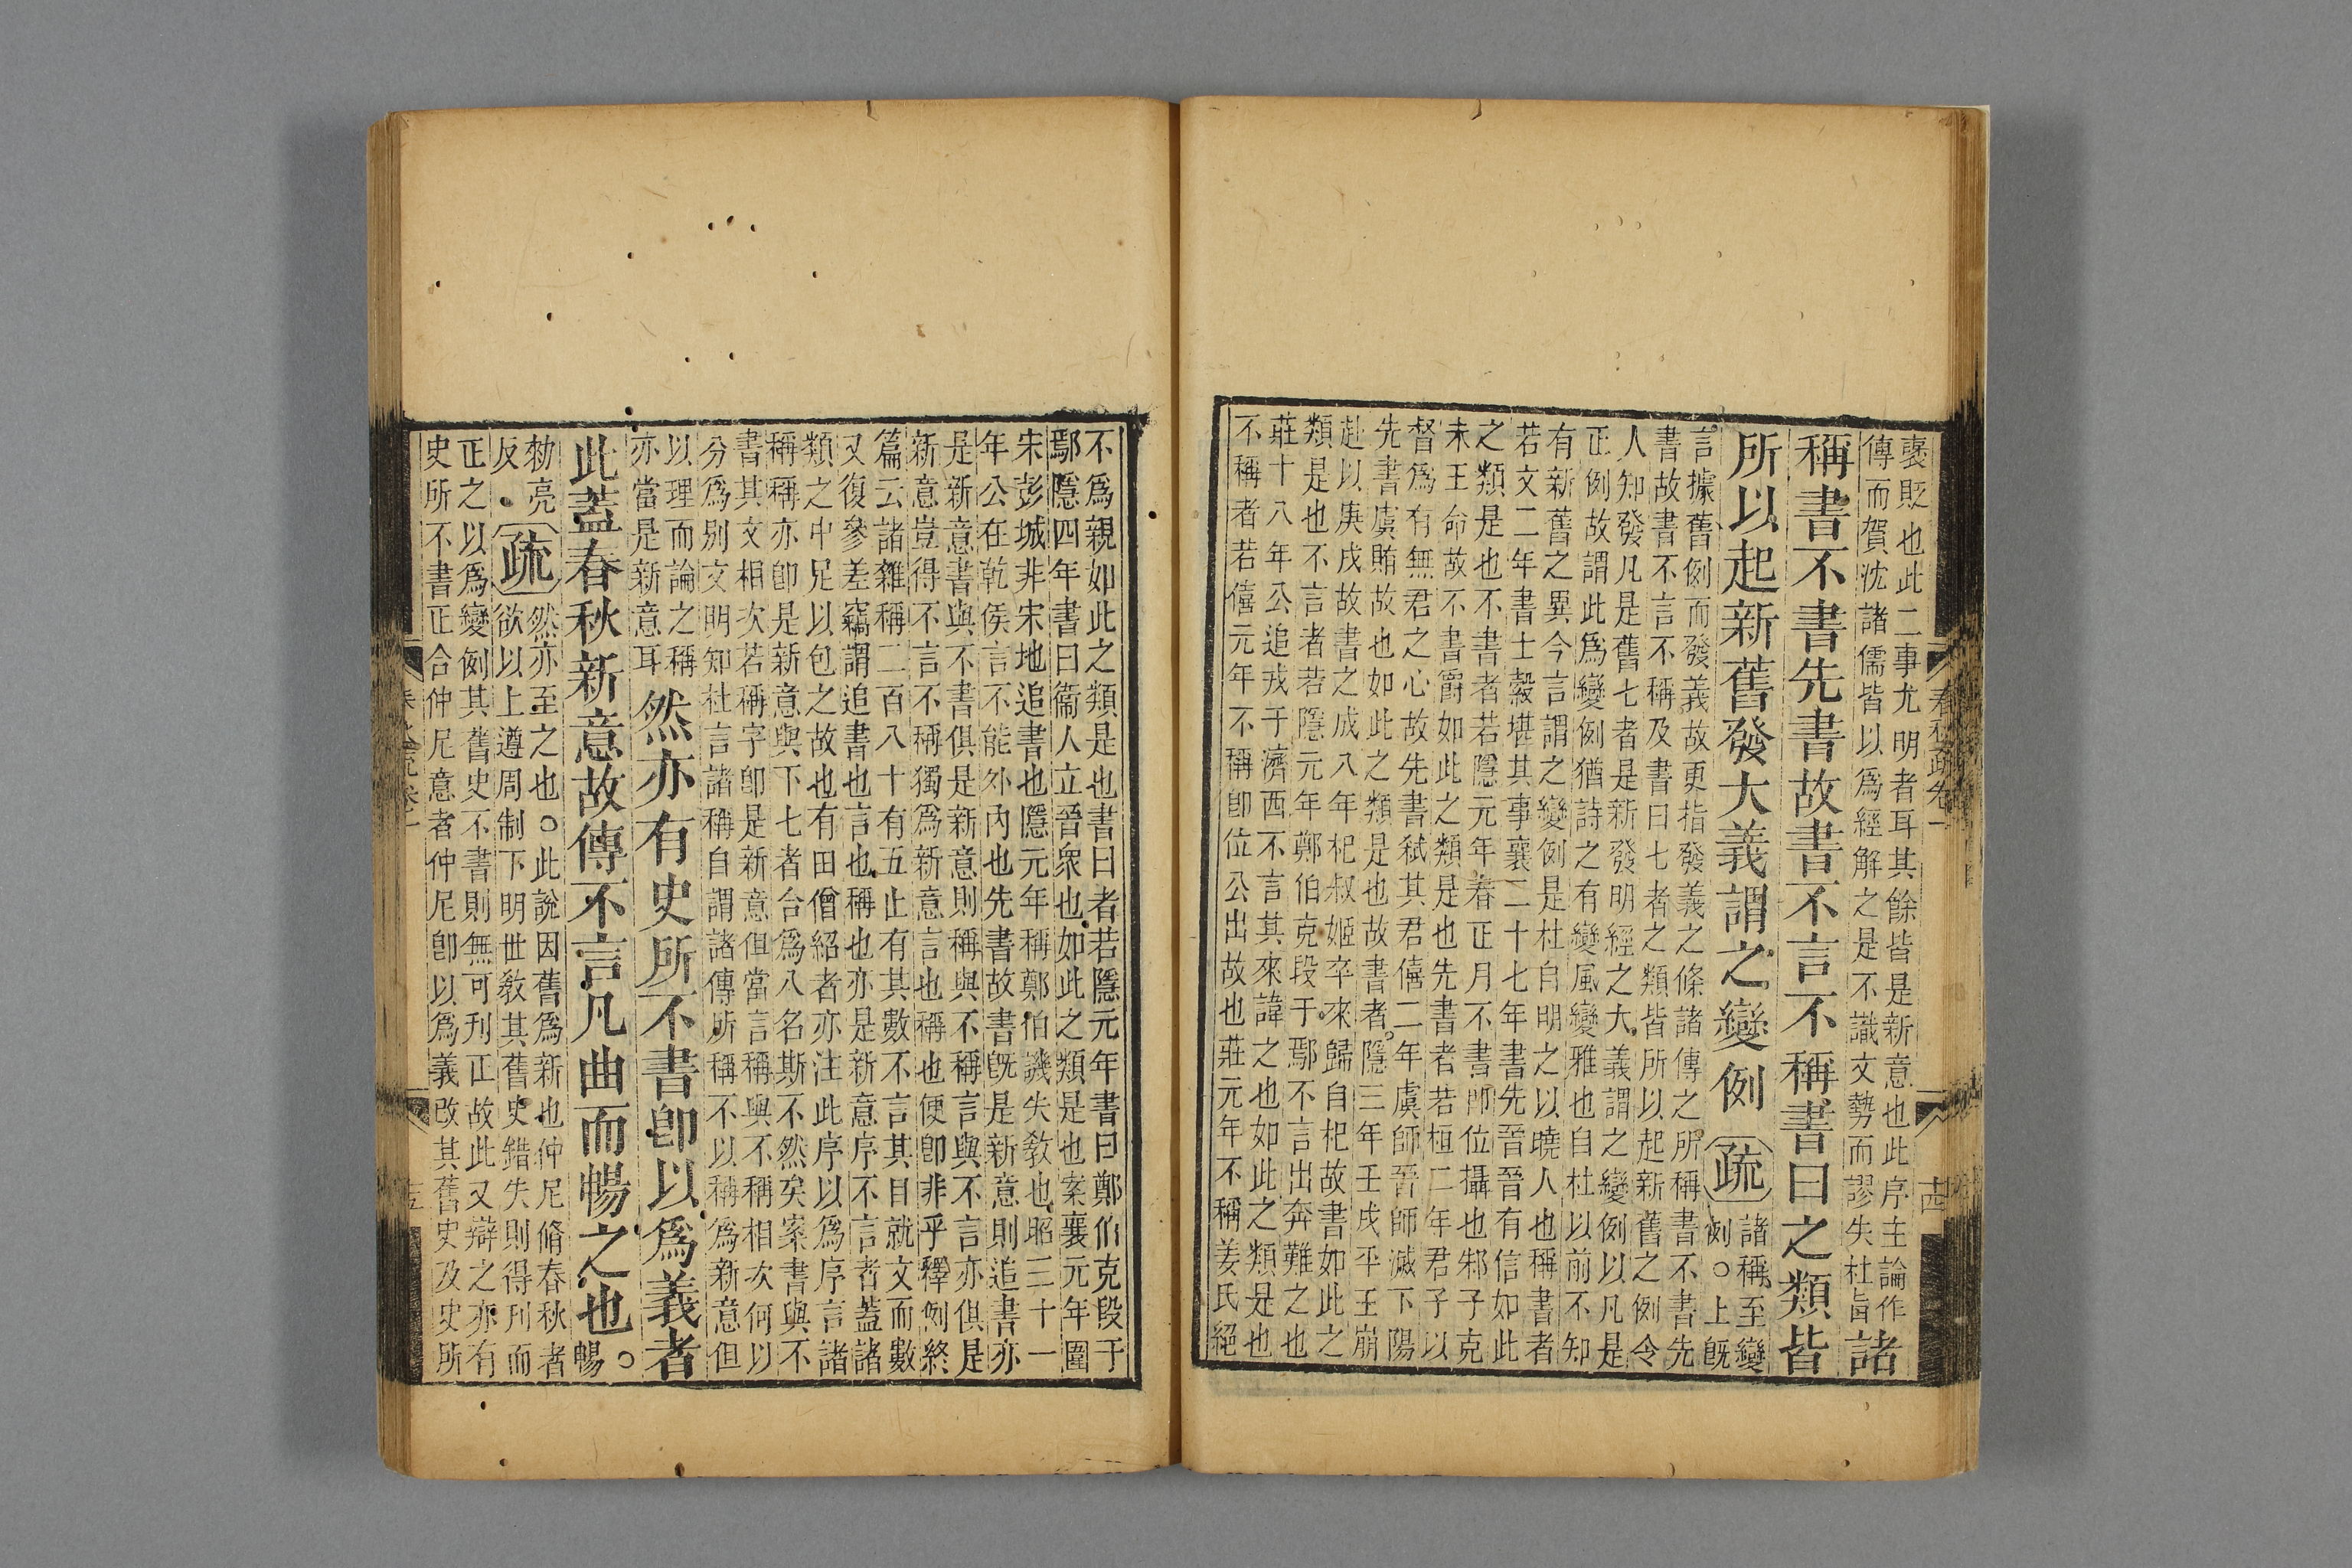 春秋疏卷一
十四
褒貶也此二事尤明者耳其餘皆是新意也此序主論作
傳而賀沈諸儒皆以爲經解之是不識文勢而謬失杜旨諸
稱書不書先書故書不言不稱書曰之類皆
所以起新舊發大義謂之變例疏諸稱至變
例○上旣
言據舊例而發義故更指發義之條諸傳之所稱書不書先
書故書不言不稱及書曰七者之類皆所以起新舊之例令
人知發凡是舊七者是新發明經之大義謂之變例以凡是
正例故謂此爲變例猶詩之有變風變雅也自杜以前不知
有新舊之異今言謂之變例是杜自明之以曉人也稱書者
若文二年書士縠堪其事襄二十七年書先晉晉有信如此
之類是也不書者若隱元年春正月不書卽位攝也邾子克
未王命故不書爵如此之類是也先書者若桓二年君子以
督爲有無君之心故先書弒其君僖二年虞師晉師滅下陽
先書虞賄故也如此之類是也故書者隱三年壬戌平王崩
赴以庚戌故書之成八年杞叔姬卒來歸自杞故書如此之
類是也不言者若隱元年鄭伯克段于鄢不言出奔難之也
莊十八年公追戎于濟西不言其來諱之也如此之類是也
不稱者若僖元年不稱卽位公出故也莊元年不稱姜氏絕
不爲親如此之類是也書曰者若隱元年書曰鄭伯克段于
鄢隱四年書曰衞人立晉衆也如此之類是也案襄元年圍
宋彭城非宋地追書也隱元年稱鄭伯譏失敎也昭三十一
年公在乾侯言不能外內也先書故書旣是新意則追書亦
是新意書與不書俱是新意則稱與不稱言與不言亦俱是
新意豈得不言不稱獨爲新意言也稱也便卽非乎釋例終
篇云諸雜稱二百八十有五止有其數不言其目就文而數
又復參差竊謂追書也言也稱也亦是新意序不言者蓋諸
類之中足以包之故也有田僧紹者亦注此序以爲序言諸
稱稱亦卽是新意與下七者合爲八名斯不然矣案書與不
書其文相次若稱字卽是新意但當言稱與不稱相次何以
分爲別文明知杜言諸稱自謂諸傳所稱不以稱爲新意但
以理而論之稱
亦當是新意耳然亦有史所不書卽以爲義者
此蓋春秋新意故傳不言凡曲而暢之也○暢
勑亮
反疏然亦至之也○此說因舊爲新也仲尼脩春秋者
欲以上遵周制下明世敎其舊史錯失則得刊而
正之以爲變例其舊史不書則無可刊正故此又辯之亦有
史所不書正合仲尼意者仲尼卽以爲義改其舊史及史所